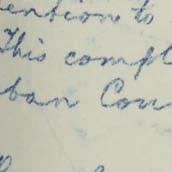 ention to
This compl
ban Cou